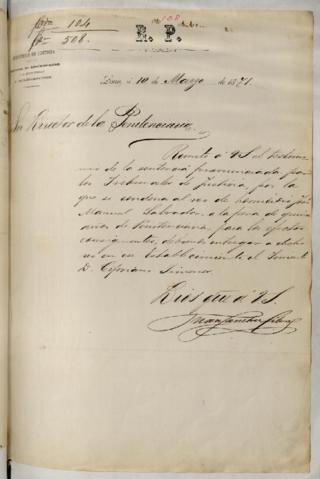 104
508.
108
R. P.
Lima, á 10 de Marzo de 1871.
Sor Director de la Penitenciaria.
Remito á VS. el testimo-
nio de la sentencia pronunciada por
los Tribunales de justicia, por la
que se condena al reo de homicidio José
Manuel Salvador, a la pena de quince
años de Penitenciaria, para los efectos
consiguientes, debiendo entregar a dicho
reo en ese Establecimiento el Teniente
D. Cipriano
Dios gue á VS.